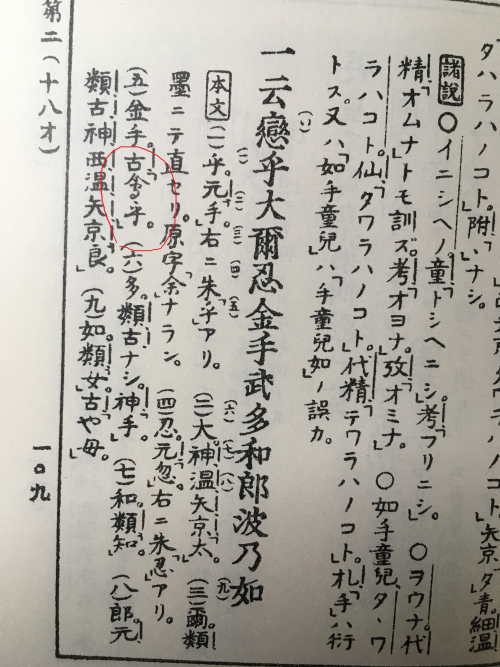 附ハナシ。
諸説 ○イニシヘノ。童「トシヘニシ」。考「フリニシ」。 ○ヲウナ。代
精「オムナ」トモ訓ズ。考「オヨナ」。攷「オミナ」。 ○如手童兒、タ、ワ
ラハコト。仙「タワラハノコト」。代精「テワラハノコト」。札「手」ハ衍
トス。又ハ「如手童兒」ハ「手童兒如」ノ誤カ。
一云戀乎大爾忍金手武多和郎波乃如
本文 (一)乎元「手」。右ニ朱「乎」アリ。 (二)大神温矢京「太」。 (三)爾類
墨ニテ直セリ。原字「余」ナラン。 (四)忍元「忽」。右ニ朱「忍」アリ。
(五)金手古「禽乎」。 (六)多類古ナシ。神「手」。 (七)和類「知」。 (八)郎元
類古神西温矢京「良」。 (九)如類「女」古「や毋」。
第二(十八オ)
一〇九